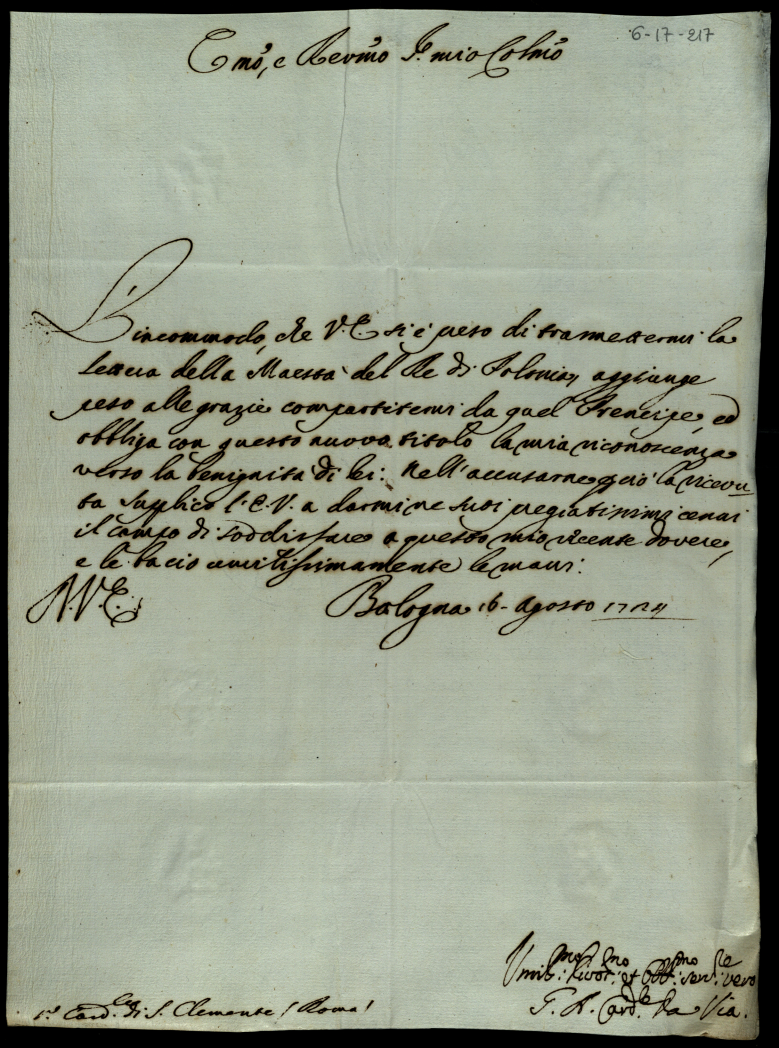 6-17-217
Emo, e Revmo Sr. mio Colmo
L'incommodo, che V.E. si è preso di trasmettermi la
lettera della Maestà del Re di Polonia, aggiunge
peso alle grazie compartitemi da quel Prencipe, ed
obbliga con questo nuovo titolo la mia riconoscenza
verso la benignità di lei: Nell'accusarne perciò la ricevu
ta supplico l'E.V. a darmi ne suoi pregiatissimi cenni
il campo di soddisfare a questo mio vicente dovere,
e le bacio umilissimamente le mani:
A.V.E.
Bologna 16 Agosto 1724
Umilmo: Divotmo: et Obbmo: servre: vero
G. A. Cardle Da Via.
Sr. Cardle di S. Clemente / Roma /